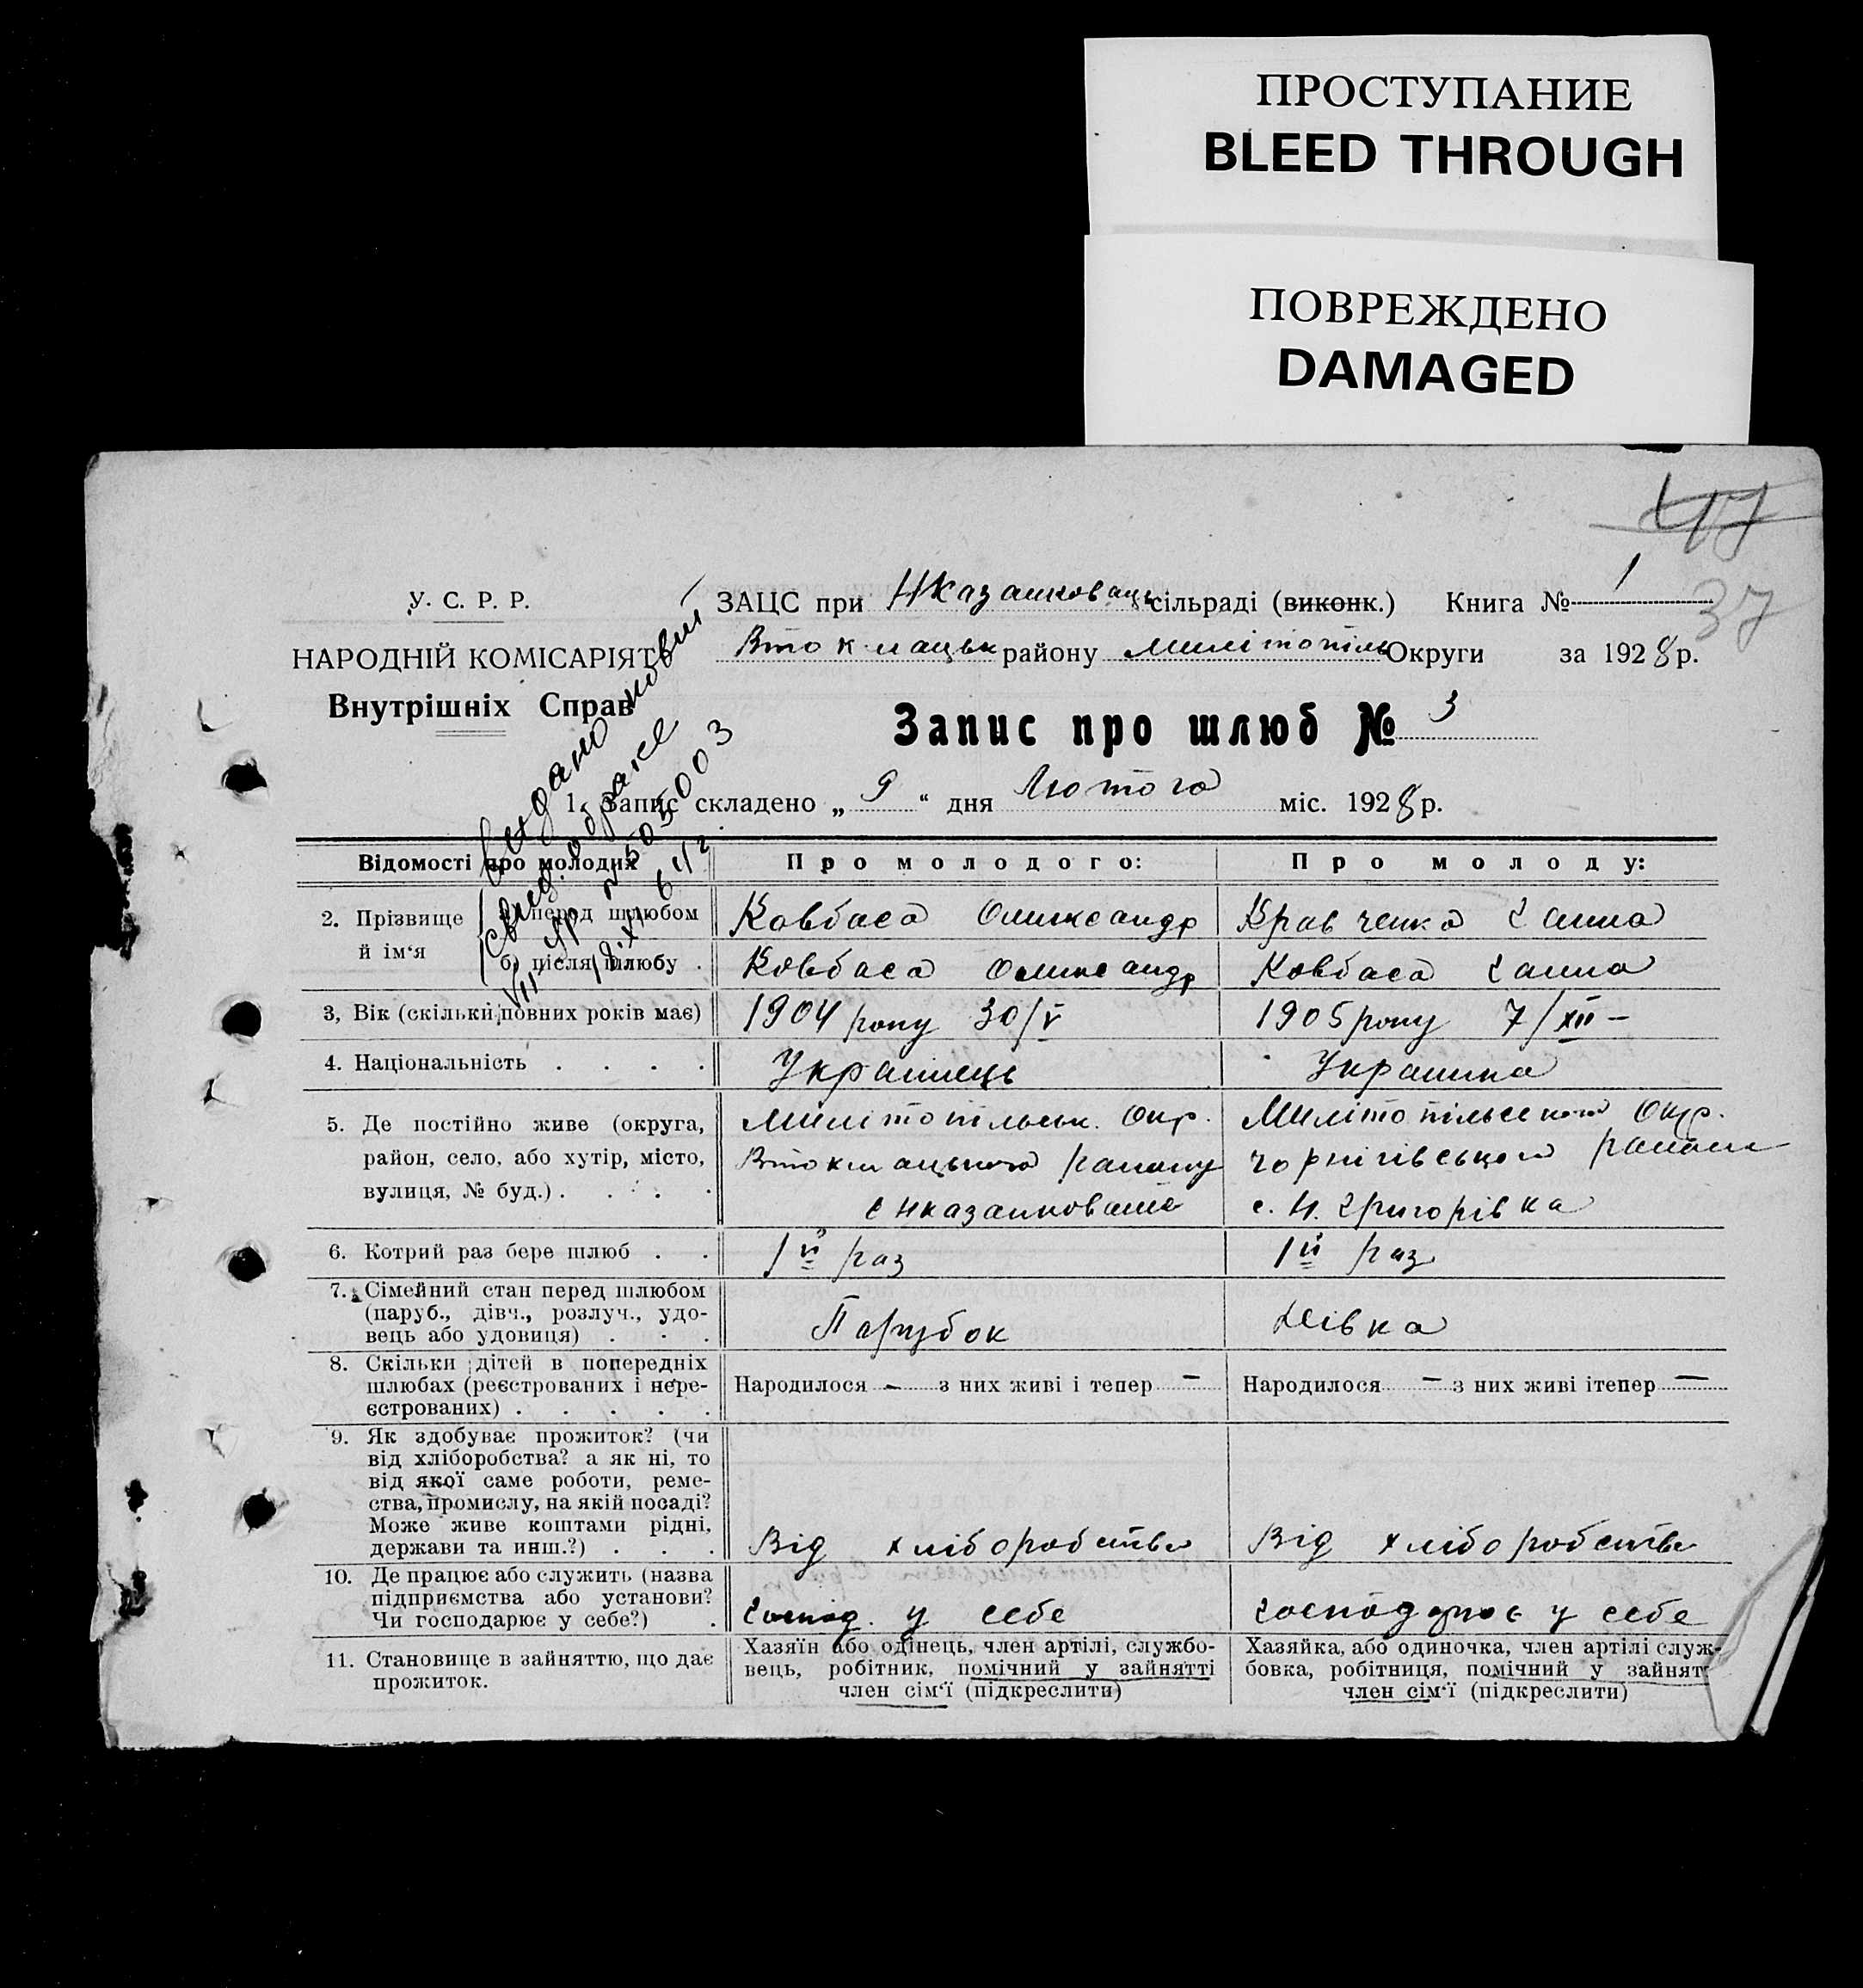 ПРОСТУПАНИЕ
BLEED THROUGH
ПОВРЕЖДЕНО
DAMAGED
47
37
У. С. Р. Р.
НАРОДНІЙ КОМІСАРІЯТ
Внутрішніх Справ
ЗАЦС при НКазанковацьк сільраді (виконк.) Книга № 1
Втокмацьк району Милітопіль Округи за 1928 р.
Запис про шлюб № 3
1. Запис складено „ 9 “ дня Лютого міс. 1928 р.
Видано повий
свид. о браке
Відомості про молодих
Про молодого:
Про молоду:
2. Прізвище й ім‘я
а) перед шлюбом
Ковбаса Олександр
Кравченко Ганна
б) після шлюбу .
Ковбаса Олександр
Ковбаса Ганна
3, Вік (скільки повних років має)
1904 року 30/V
1905 року 7/XII –
4. Національність . . . .
Українець
Українка
5. Де постійно живе (округа,
район, село, або хутір, місто,
вулиця, № буд.) . . . .
Милітопільськ. Окр.
Втокмацького району
с Нказанковате
Милітопільського Окр.
Чорнігівського району
с. Н. Григорівка
6. Котрий раз бере шлюб . .
1й раз
1й раз
7. Сімейний стан перед шлюбом
(паруб., дівч., розлуч., удо-
вець або удовиця) . . .
Парубок
Дівка
8. Скільки дітей в попередніх
шлюбах (реєстрованих і нере-
єстрованих) . . . . .
Народилося – з них живі і тепер –
Народилося – з них живі ітепер –
9. Як здобуває прожиток? (чи
від хліборобства? а як ні, то
від якої саме роботи, реме-
ства, промислу, на якій посаді?
Може живе коштами рідні,
держави та инш.?) . . .
Від хліборобства
Від хліборобства
10. Де працює або служить (назва
підприємства або установи?
Чи господарює у себе?) .
Господ. у себе
Господарює у себе
11. Становище в зайняттю, що дає
прожиток.
Хазяїн або одінець, член артілі, службо-
вець, робітник, помічний у зайнятті
член сім‘ї (підкреслити)
Хазяйка, або одиночка, член артілі служ-
бовка, робітниця, помічний у зайнят
член сім‘ї (підкреслити)